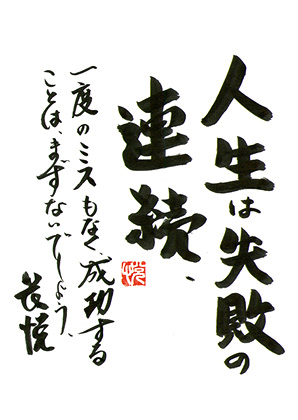 人生は失敗の
連続、
一度のミスもなく、成功する
ことは、まずないでしょう。
長悦
悦